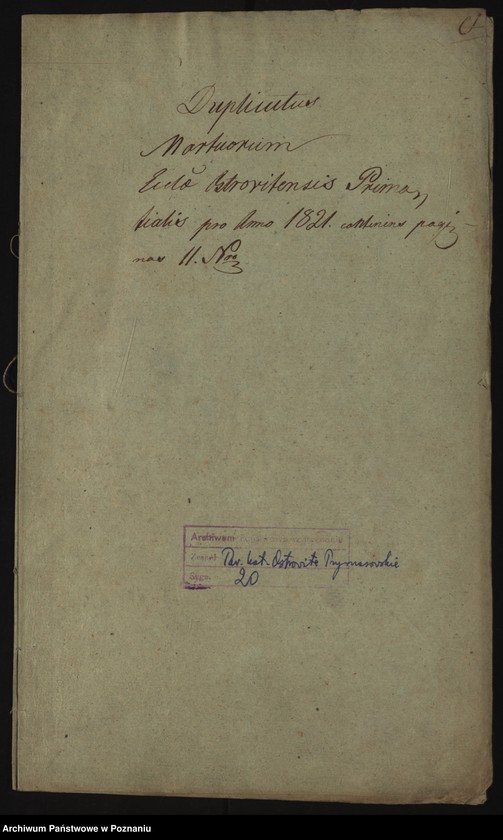 Duplicatus
Mortuorum
Eccłæ Ostrovitensis Prima
tialis pro Anno 1821. continens pagi-
nas 11. Nro
Archiwum
Zespół Par. kat. Ostrowite Prymasowskie
Sygn. 20
Archiwum Państwowe w Poznaniu
www.szukajwarchiwach.gov.pl